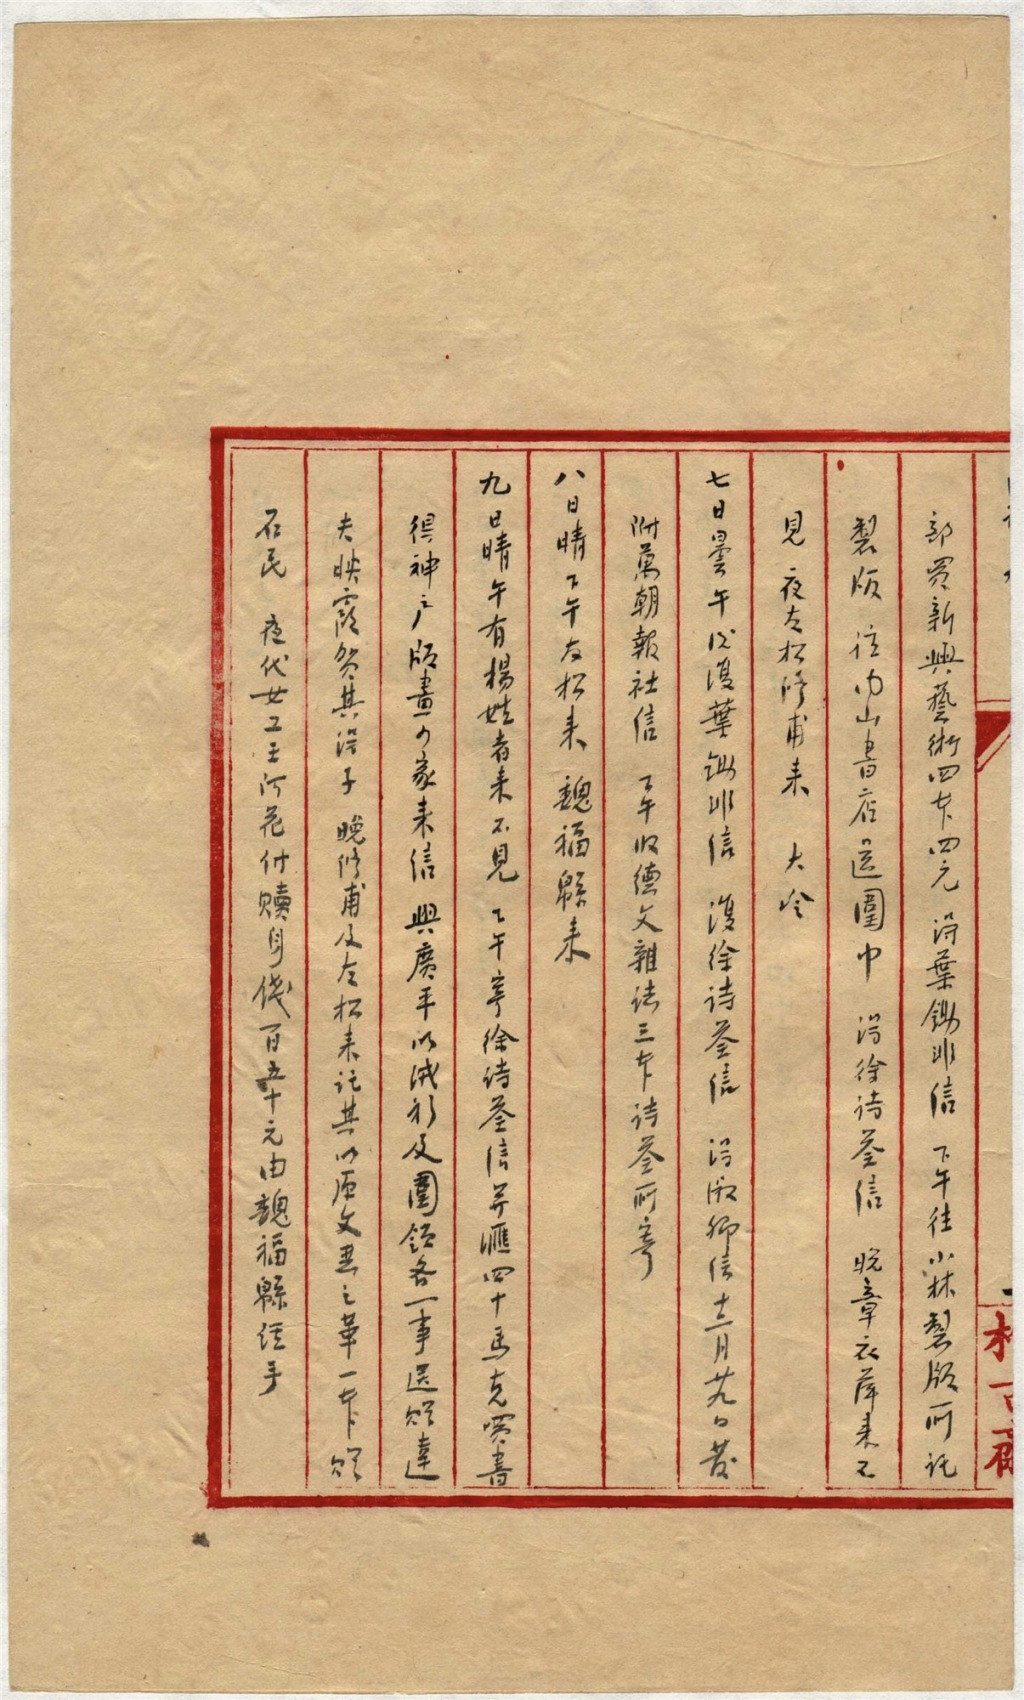 部買新興藝術四本四元 得葉鋤非信 下午往小林製版所託
製版 往內山書店還圍巾 得徐詩荃信 晚章衣萍來不
見 夜友松修甫來 大冷
七日曇午後復葉鋤非信 復徐詩荃信 得淑卿信十二月廿九日發
附萬朝報社信 下午收德文雜誌三本詩荃所寄
八日晴下午友松來 魏福緜來
九日晴午有楊姓者來不見 下午寄徐詩荃信并匯四十馬克買書
得神戶版畫の家來信 與廣平以絨衫及圍領各一事送贈達
夫映霞賀其得子 晚修甫及友松來託其以原文惡之華一本贈
石民 夜代女工王阿花付贖身錢百五十元由魏福緜經手